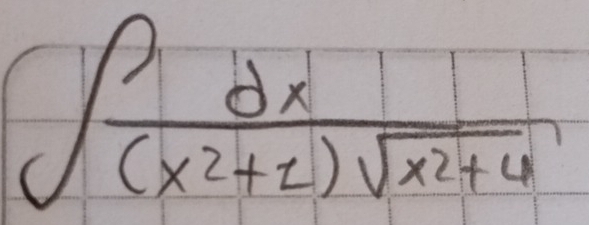 ∫ dx / ((x²+1)√(x²+4))